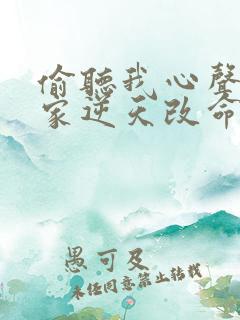 偷聽我心聲
家逆天改命
愚可及
未经同意禁止转载